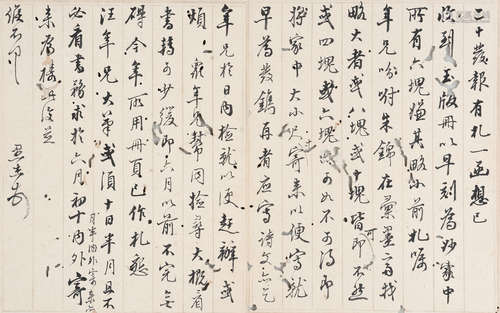 二十發報有札一函想已
收到玉版冊以早刻為妙家中
所有六塊嫌其略小前札囑
年兄吩咐朱錦在彙墨齋找
略大者或八塊或十塊皆即不然
或四塊或六塊而可如不可得即
將家中大小尺寄來以便寫就
早為發鐫再者應寫詩文亦乞
年兄於日內檢就以便趕辦或
煩年兄幫同檢尋大概看
書稿可少緩即六月以前不完無
碍今年所用冊頁已作札懇
汪年兄大筆或須十日半月且不
必看書務求於六月初十內外寄
月半內外寄來亦可
來為禱此泐並
候不一